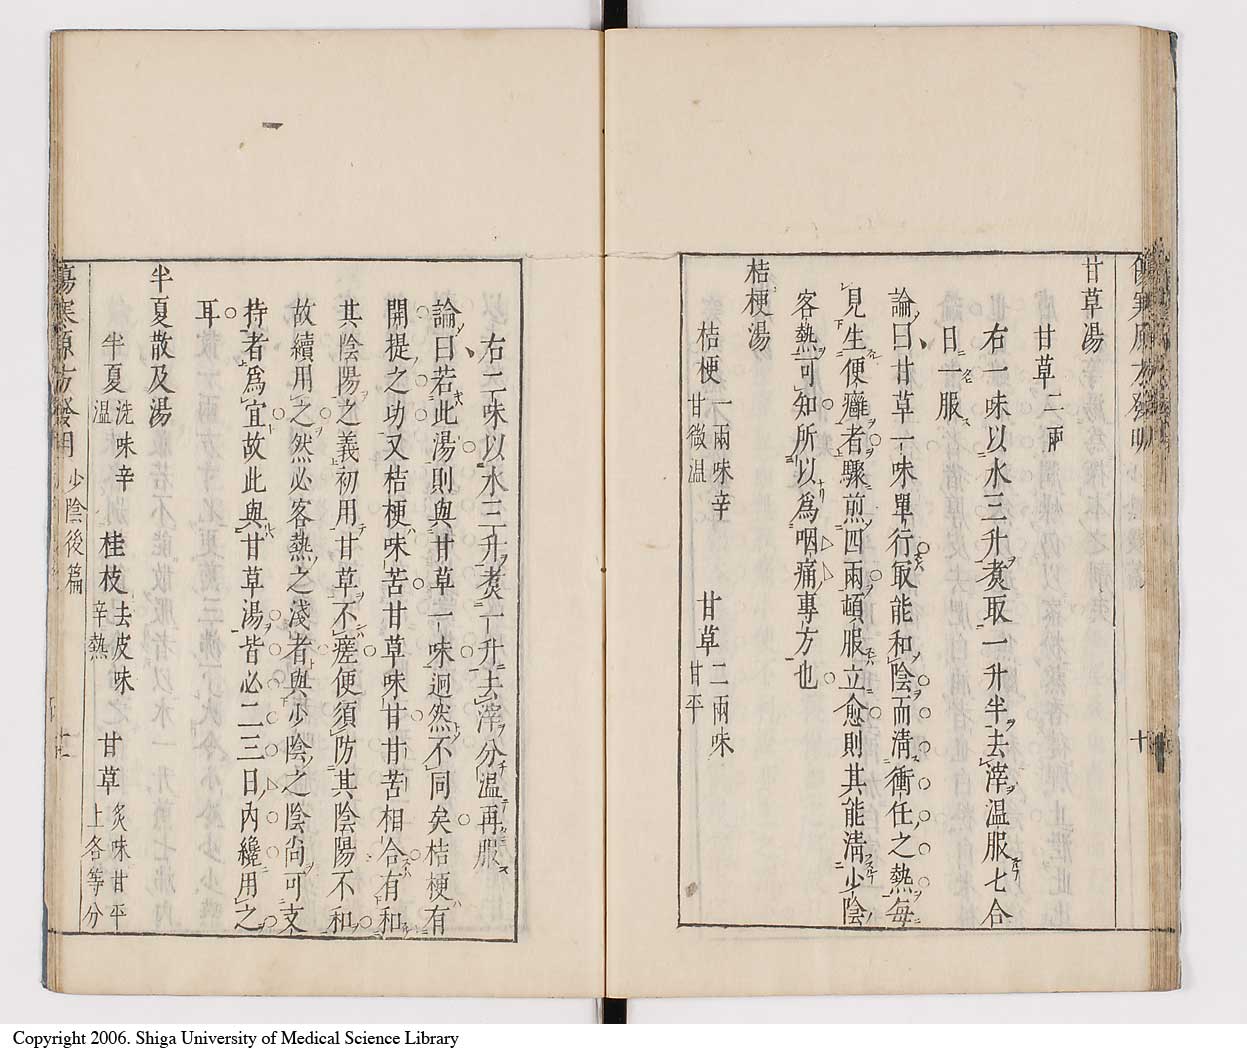 傷寒原方發明
十
甘草湯
甘草二兩
右一味以水三升煑取一升半去滓温服七合
日二服
論曰甘草一味單行㝡能和陰而淸衝任之熱每
見生便癰者驟煎四兩頓服立愈則其能淸少陰
客熱可知所以爲咽痛專方也
桔梗湯
桔梗一兩味辛甘微温 甘草二兩味甘平
右二味以水三升煑一升去滓分温再服
論曰若此湯則與甘草一味迥然不同矣桔梗有
開提之功又桔梗味苦甘草味甘甘苦相合有和
其陰陽之義初用甘草不瘥便須防其陰陽不和
故續用之然必客熱之淺者與少陰之陰尙可支
持者爲宜故此與甘草湯皆必二三日內纔用之
耳
半夏散及湯
半夏洗味辛温 桂枝去皮味辛熱 甘草炙味甘平上各等分
傷寒原方發明 少陰後篇
十一
Copyright 2006. Shiga University of Medical Science Library